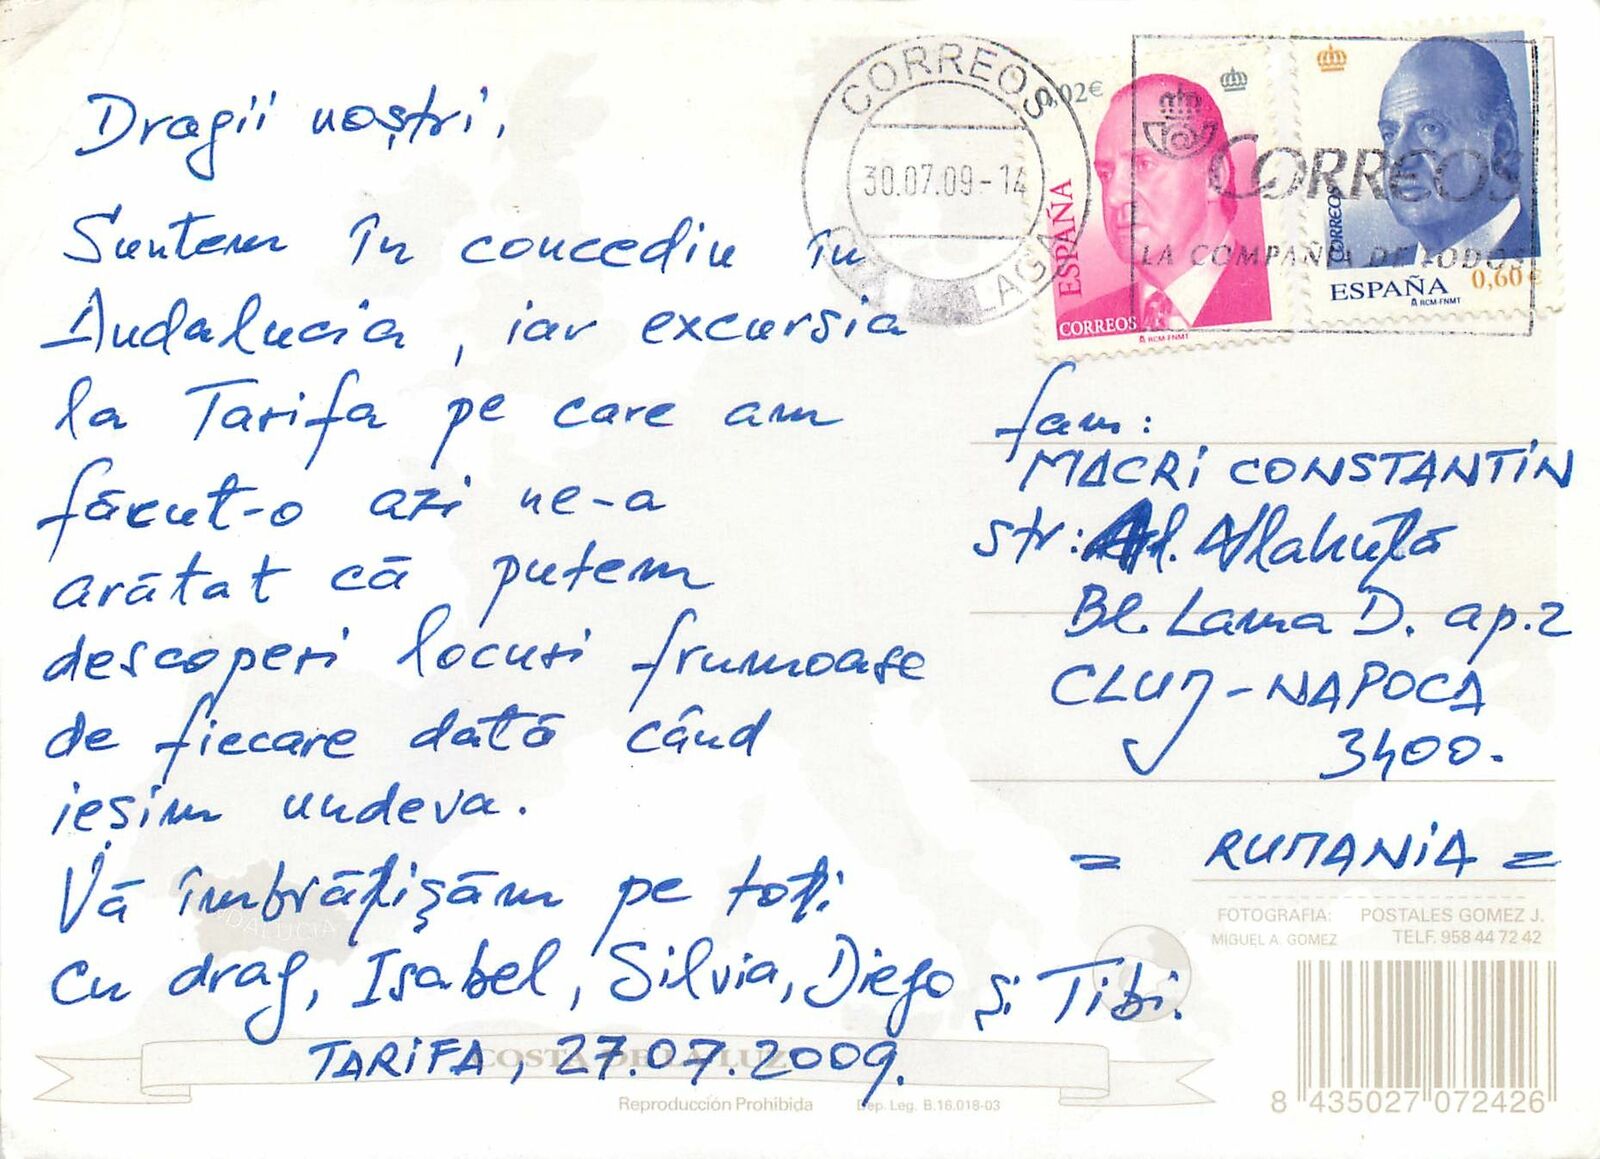 Dragii noștri,
Suntem în concediu în
Andalucia, iar excursia
la Tarifa pe care am
făcut-o azi ne-a
arătat că putem
descoperi locuri frumoase
de fiecare dată când
ieșim undeva.
Vă îmbrățișăm pe toți
Cu drag, Isabel, Silvia, Diego și Tibi.
TARIFA, 27.07.2009.
CORREOS
30.07.09-14
0,02€
ESPAÑA
CORREOS
RCM-FNMT
CORREOS
LA COMPAÑIA DE TODOS
CORREOS
0,60 €
ESPAÑA
RCM-FNMT
fam:
MACRI CONSTANTIN
str: Al. Vlahuță
Bl. Lama D. ap. 2
CLUJ-NAPOCA
3400.
= RUMANIA =
FOTOGRAFIA: POSTALES GOMEZ J.
MIGUEL A. GOMEZ TELF. 958 44 72 42
ANDALUCIA
COSTA DE LA LUZ
Reproducción Prohibida Dep. Leg. B.16.018-03
8 435027 072426